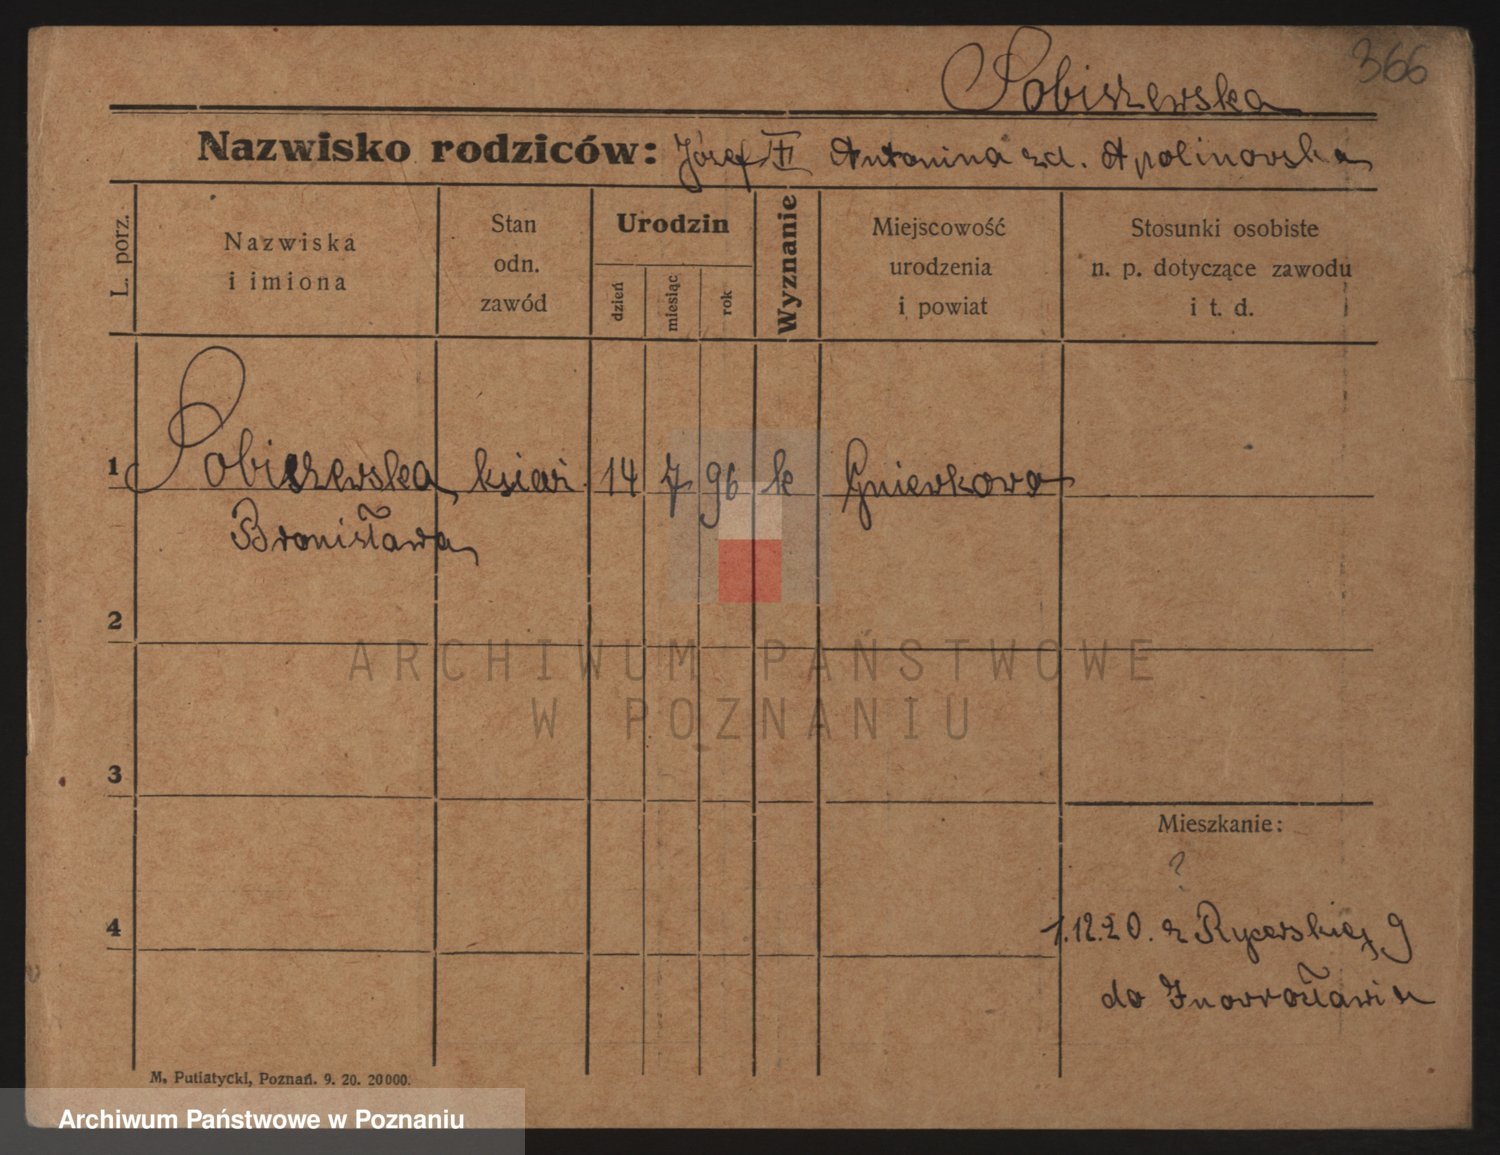 366
Sobiszewska
Nazwisko rodziców: Józef Antonina zd. Apolinarska
L. porz.
Nazwiska i imiona
Stan odn. zawód
Urodzin
dzień
miesiąc
rok
Wyznanie
Miejscowość urodzenia i powiat
Stosunki osobiste n. p. dotyczące zawodu i t. d.
1 Sobiszewska 14 7 96 k Gniewkowo
Bronisława
2
3
Mieszkanie:
?
4 1.12.20. z Rycerskiej 9
do Inowrocławia
M. Putiatycki, Poznań. 9. 20. 20000.
ARCHIWUM PAŃSTWOWE
W POZNANIU
Archiwum Państwowe w Poznaniu